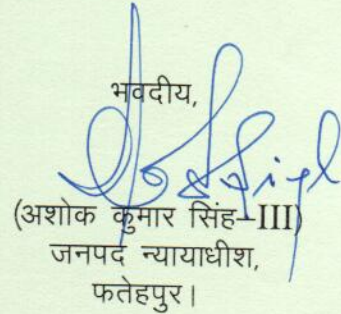 भवदीय,
(अशोक कुमार सिंह-III)
जनपद न्यायाधीश,
फतेहपुर।